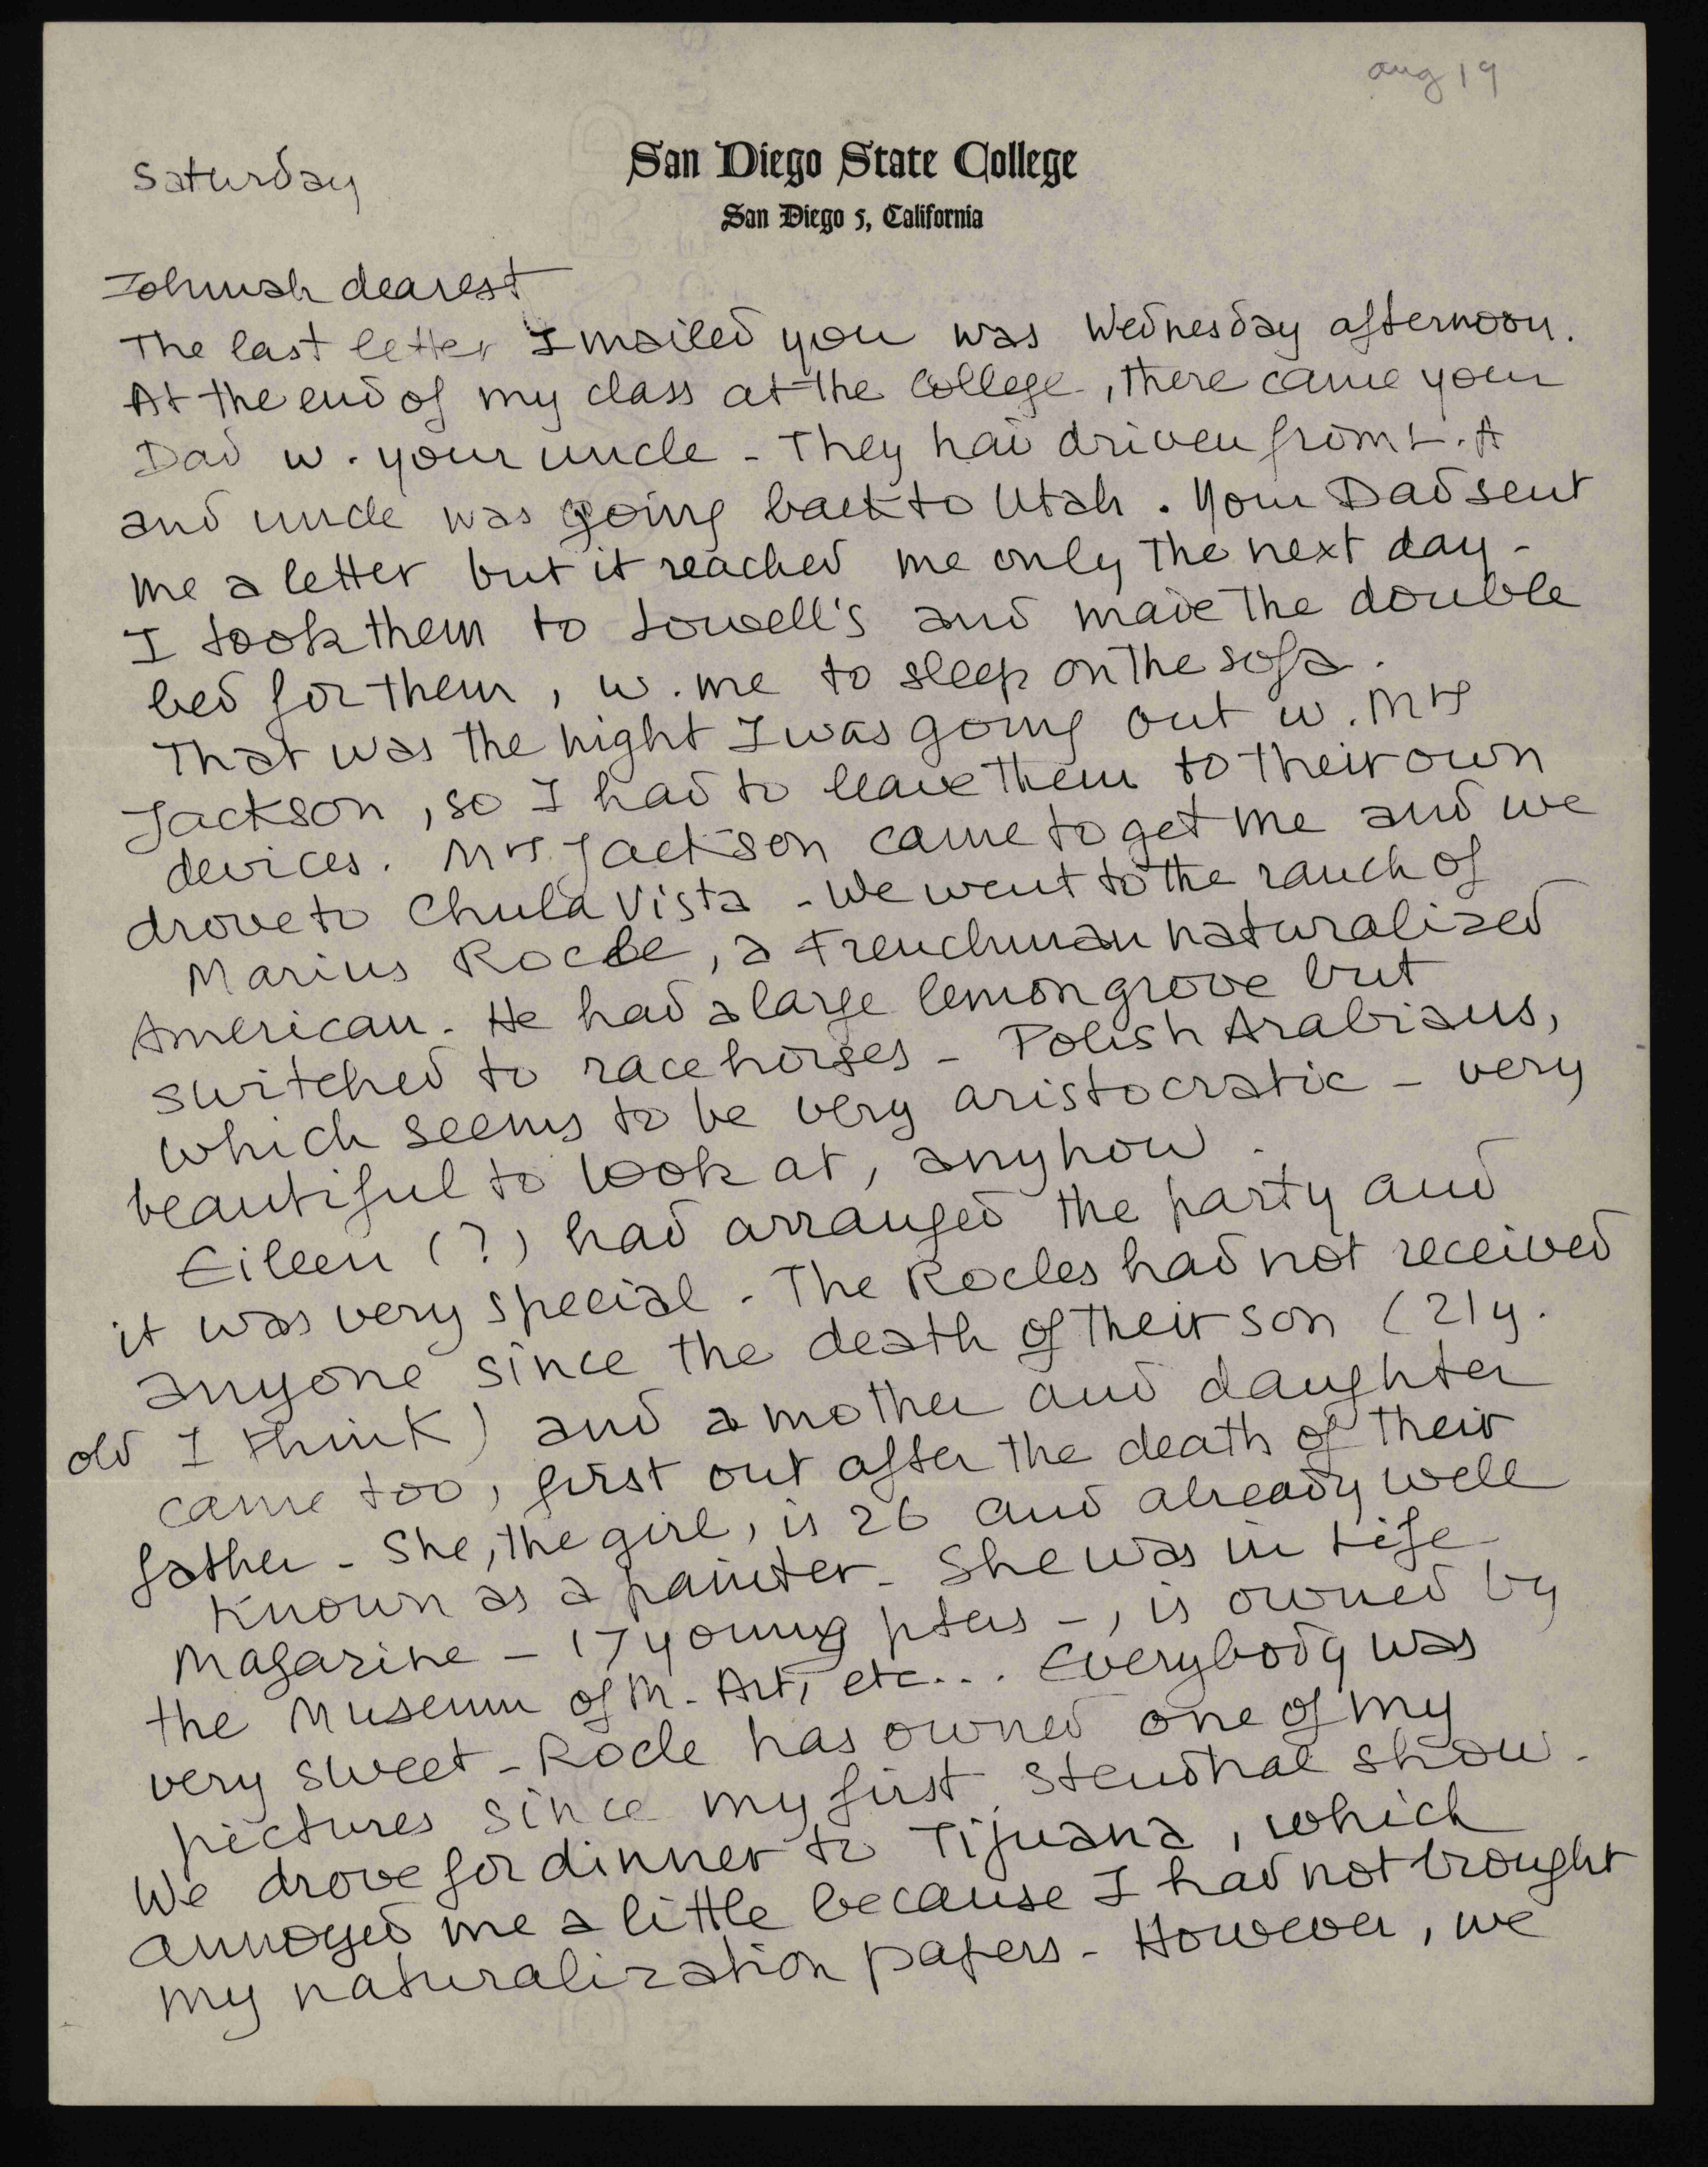 aug 19
Saturday
San Diego State College
San Diego 5, California
Zohmah dearest
The last letter I mailed you was Wednesday afternoon.
At the end of my class at the College, there came your
Dad w. your uncle - They had driven from L.A
and uncle was going back to Utah. Your Dad sent
me a letter but it reached me only the next day -
I took them to Lowell's and made the double
bed for them, w. me to sleep on the sofa.
That was the night I was going out w. Mrs
Jackson, so I had to leave them to their own
devices. Mrs Jackson came to get me and we
drove to Chula Vista - We went to the ranch of
Marius Rocle, a Frenchman naturalized
American. He had a large lemon grove but
switched to race horses - Polish Arabians,
which seems to be very aristocratic - very
beautiful to look at, anyhow.
Eileen (?) had arranged the party and
it was very special - The Rocles had not received
anyone since the death of their son (21 y.
old I think) and a mother and daughter
came too, first out after the death of their
father - She, the girl, is 26 and already well
known as a painter - She was in Life
Magazine - 17 young pters -, is owned by
the Museum of M. Art, etc... Everybody was
very sweet - Rocle has owned one of my
pictures since my first Stendhal show -
We drove for dinner to Tijuana, which
annoyed me a little because I had not brought
my naturalization papers - However, we